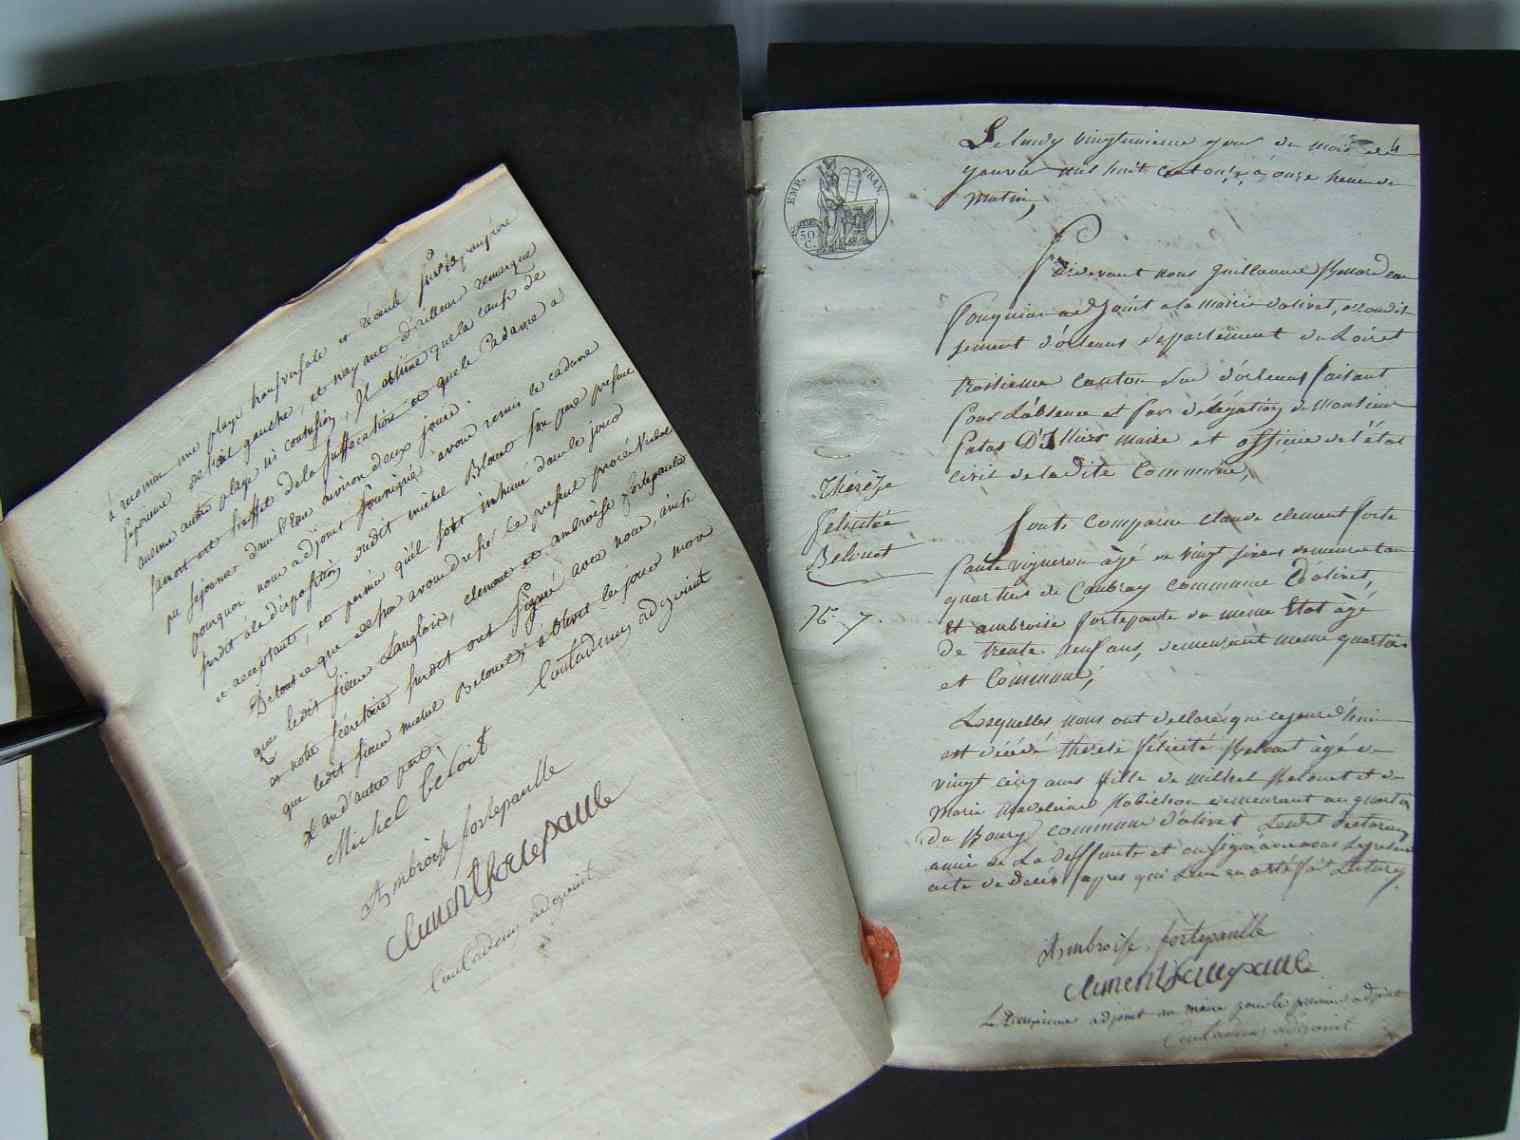 a reconnu une playe transversale et récente sur la paupière
superieure de l'œil gauche, et n'ayant d'ailleurs remarqué
aucune autre playe ni contusion, Il estime que la cause de
la mort est l'effet de la suffocation et que le Cadavre a
pu sejourner dans l'Eau environ deux jours.
pourquoi nous adjoint soussigné avons remis le cadavre
susdit à la disposition dudit michel Blouet son père présent
et acceptant, et permis qu'il soit inhumé dans le jour
De tout ce que dessus avons dressé Le présent procès Verbal
que ledit sieur Langlois, clement et ambroise fortepaulle
et notre sécretaire susdit ont signé avec nous, ainsi
que ledit sieur michel Belouet, à Olivet les jour mois
et an d'autre part
Coutadeur adgoint
Michel beloit
Ambroise fortepaulle
clement fortepaulle
Coutadeur adgoint
EMP. FRAN.
50 C.
Le lundy vingtunieme jour du mois de
Janvier mil huit cent onze, à onze heure du
matin,
Pardevant nous guillaume
adjoint a la mairie d'olivet, arondis
sement d'orleans departement du Loiret
troisieme canton sud d'orleans faisant
pour L'absence et par délégation de Monsieur
Patas D'Illiers maire et officier de l'état
civil de la dite Commune,
Therèse
Felicitée
Belouet
N.° 7.
sont comparu claude clement forte
paule vigneron âgé de vingt six ans demeurant au
quartier de Caubray commune D'olivet,
Et ambroise fortepaule du meme Etat âgé
de trente neuf ans, demeurant meme quartier
et Commune,
Lesquelles nous ont declaré que cejourd'hui
est décédé therese félicité Belouet âgé de
vingt cinq ans fille de Michel Belouet et de
Marie Madeleine Robichon demeurant au quartier
du Bourg commune d'olivet Lesdit declarans
amis de La deffunte et ont signé avec nous Le present
acte de décés apres que Leur en a été fait Lecture
Ambroise fortepaulle
clement fortepaulle
Le Deuxieme adjoint au maire pour le premier adjoint
Coutadeur adgoint